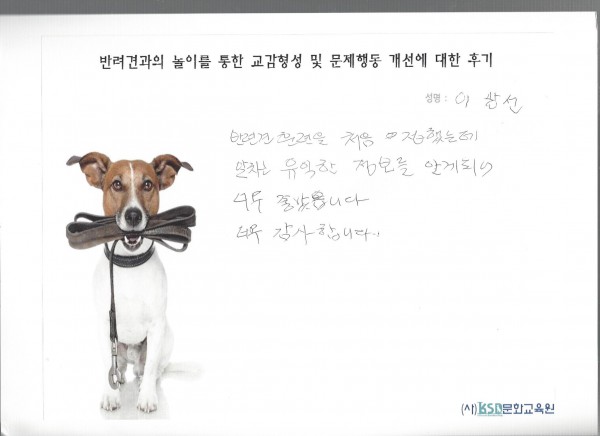 반려견과의 놀이를 통한 교감형성 및 문제행동 개선에 대한 후기
성명 : 이 선
반려견 훈련을 처음 접했는데
알차고 유익한 정보를 알게되어
너무 좋았습니다
너무 감사합니다..
(사)KSD문화교육원